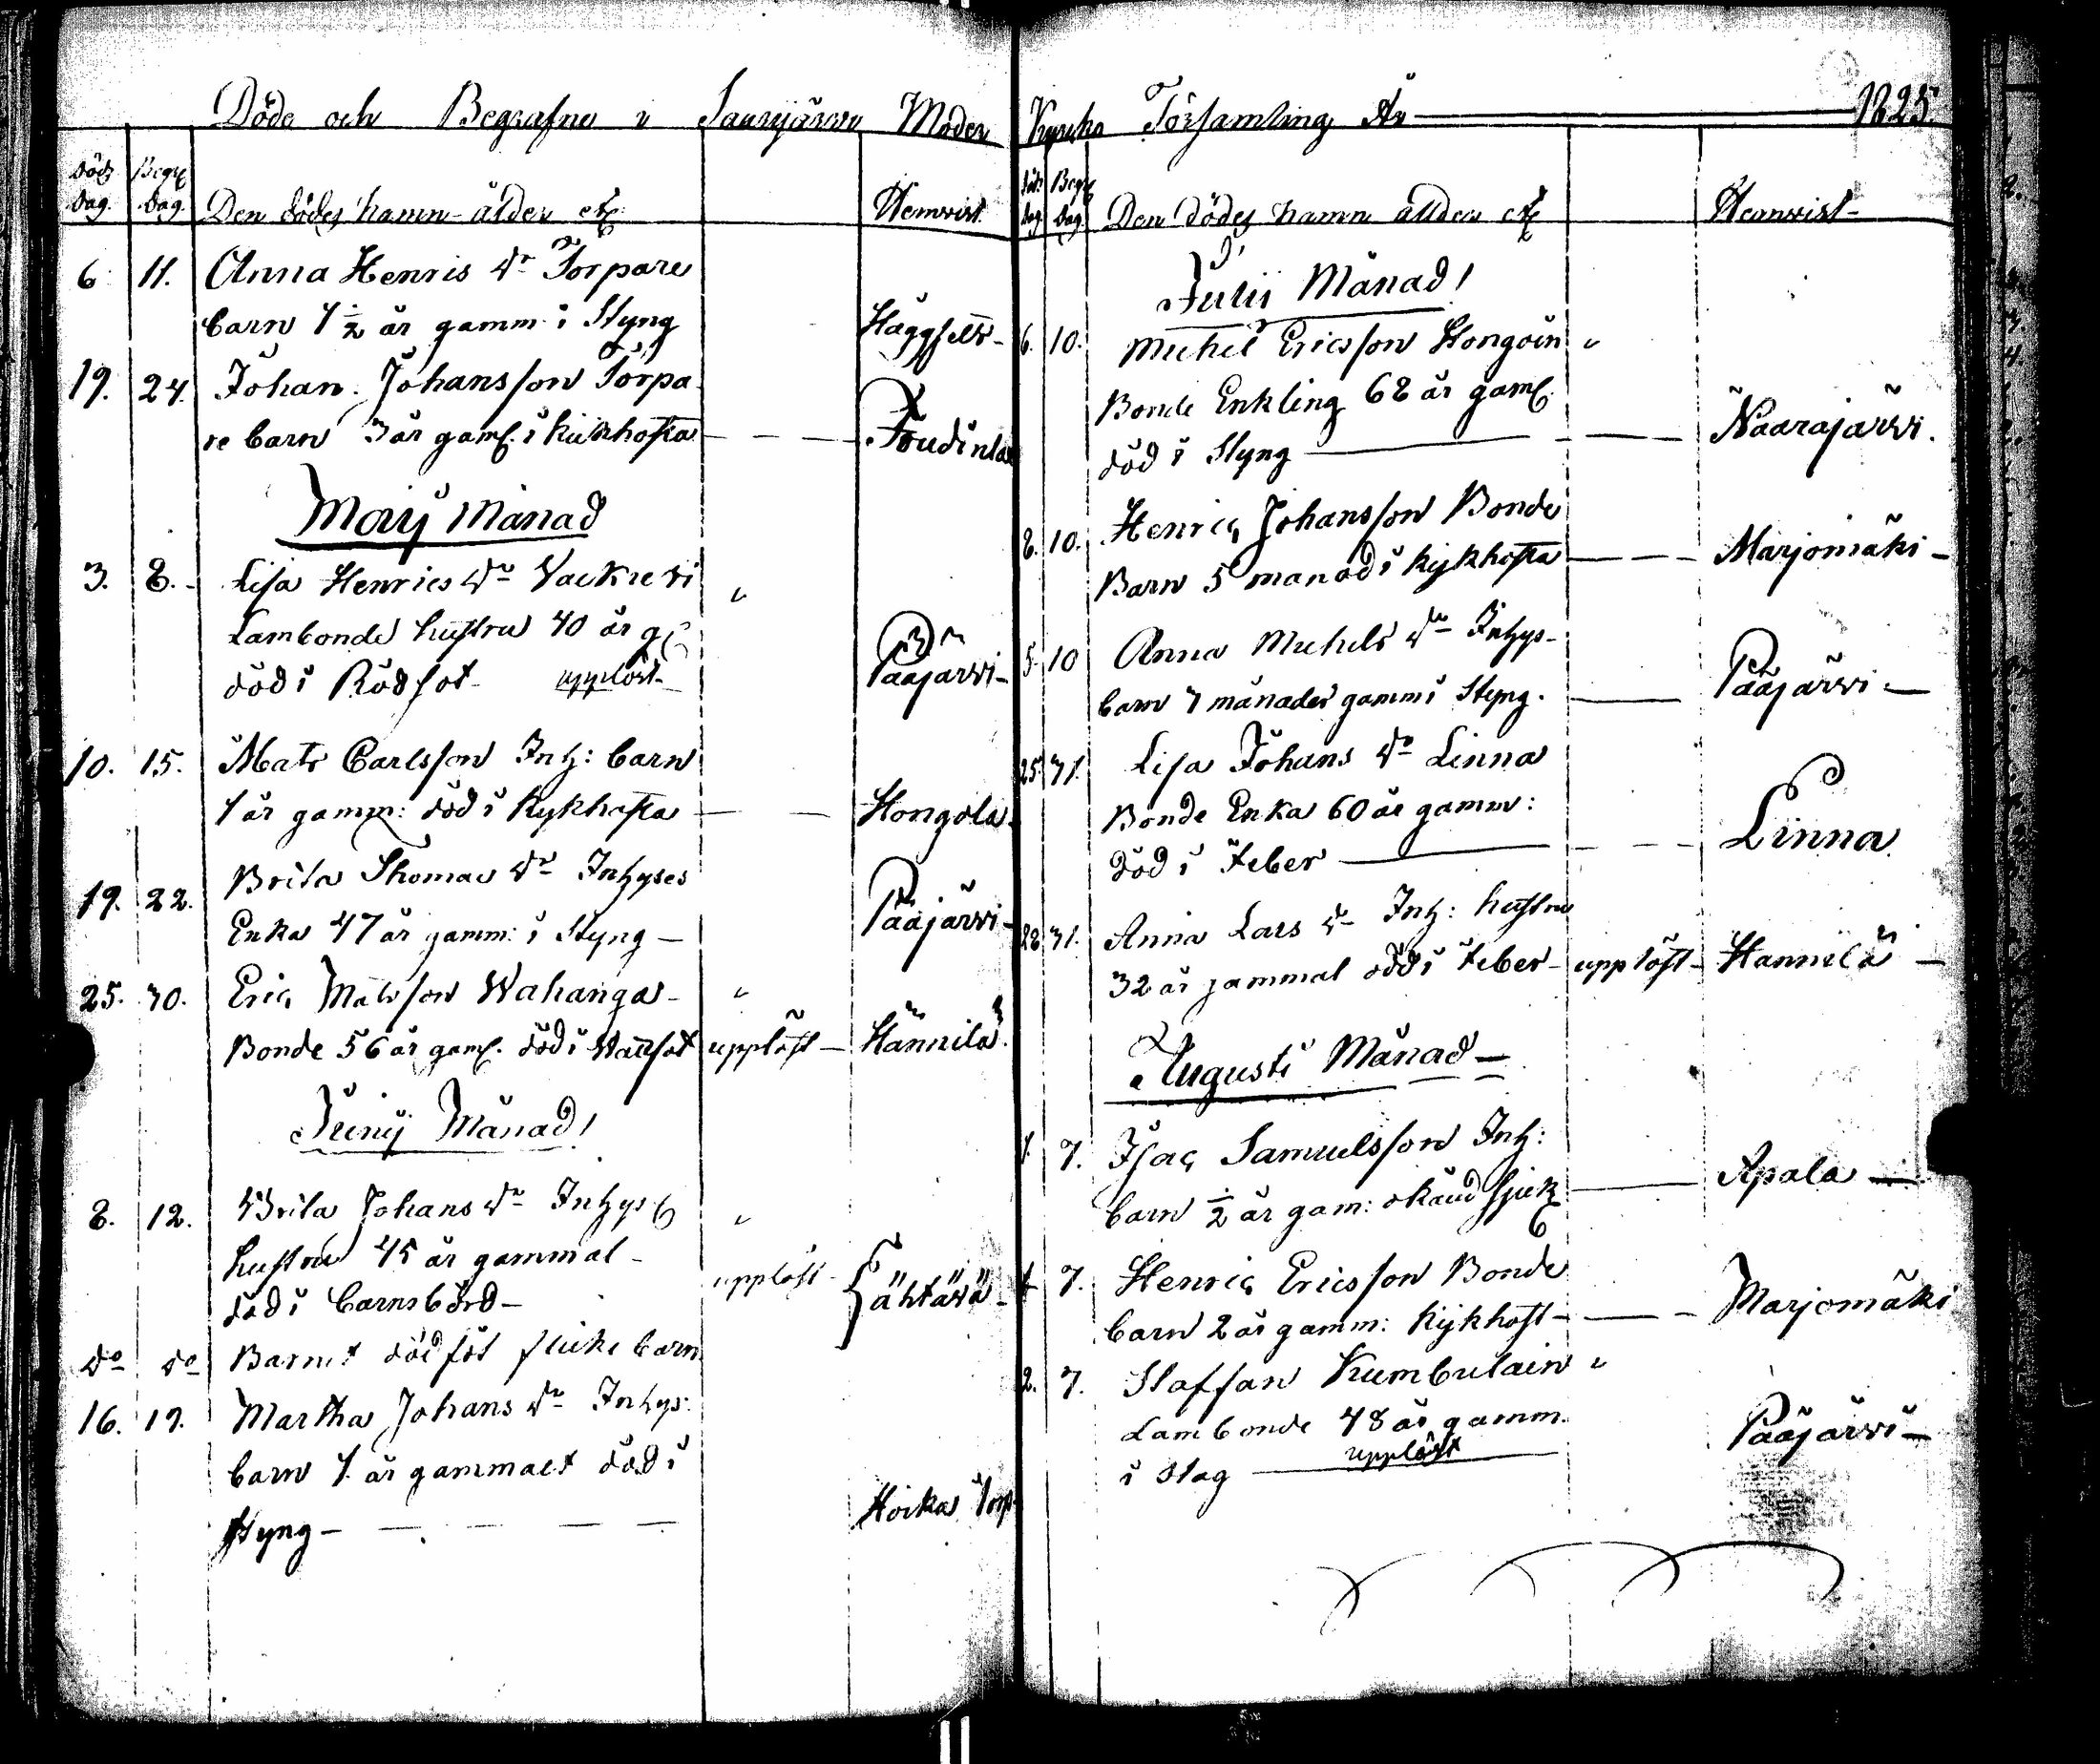 Döde och Begrafne i Saarijärvi Moder
Döds Dag. Begr: Dag. Den dödes hamn ålder etc: Hemvist
6 11. Anna Henris dr Torpare
barn 1 1/2 år gamm i Styng
19. 24. Johan Johansson Torpa
re barn 3 år gaml. i kikhosta
Maij Månad
3. 8. Lisa Henrics dr
Lambonde hustru 40 år g
död i Rödsot upplöst Pääjärvi
10. 15. Mats Carlsson Inh: barn
1 år gamm: död i Kykhosta Hongola
19. 22. Brita Thomae dr Inhyses
Enka 47 år gamm: i Styng Pääjärvi
25. 30. Eric Matsson Wahanga
Bonde 56 år gaml. död i Wattsot upplöst Hännilä
Junij Månad!
8. 12. Brita Johans dr Inhys
hustru 45 år gammal
död i barnsbörd upplöst Ähtävä
do do Barnet död föt flicke barn
16. 19. Martha Johans dr Inhys:
barn 1 år gammalt död i
Styng Hoikas Torp
Kyrcko Församling År 1825.
Döds Dag Begr Dag. Den dödes hamn ållder etc Hemvist
Julii Månad!
6. 10. Michel Ericsson Hongoin
Bonde Enkling 68 år gaml.
död i Styng Naarajärvi.
8. 10. Henric Johansson Bonde
Barn 5 manad i kijkhosta Marjomäki
5. 10 Anna Michels dr Inhys
barn 7 månader gamm i Styng. Pääjärvi
25. 31. Lisa Johans dr Linna
Bonde Enka 60 år gamm:
död i feber Linna
28 31. Anna Lars dr Inh: hustru
32 år gammal död i feber upplöst Hannila
Augusti Månad
1. 7. Isac Samuelsson Inh:
barn 1/2 år gam: okänd sjuk Apala
1 7. Henric Ericsson Bonde
barn 2 år gamm: Kijkhost Marjomäki
2. 7. Staffan Kumbulain
Lambonde 48 år gamm.
i Slag upplöst Pääjärvi